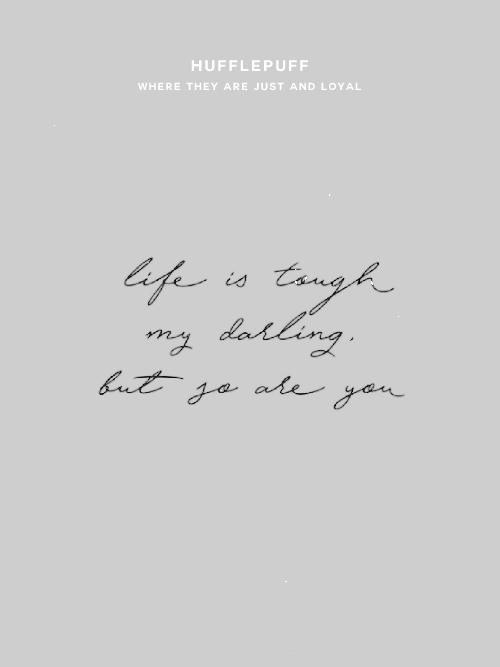 HUFFLEPUFF
WHERE THEY ARE JUST AND LOYAL
life is tough
my darling.
but so are you